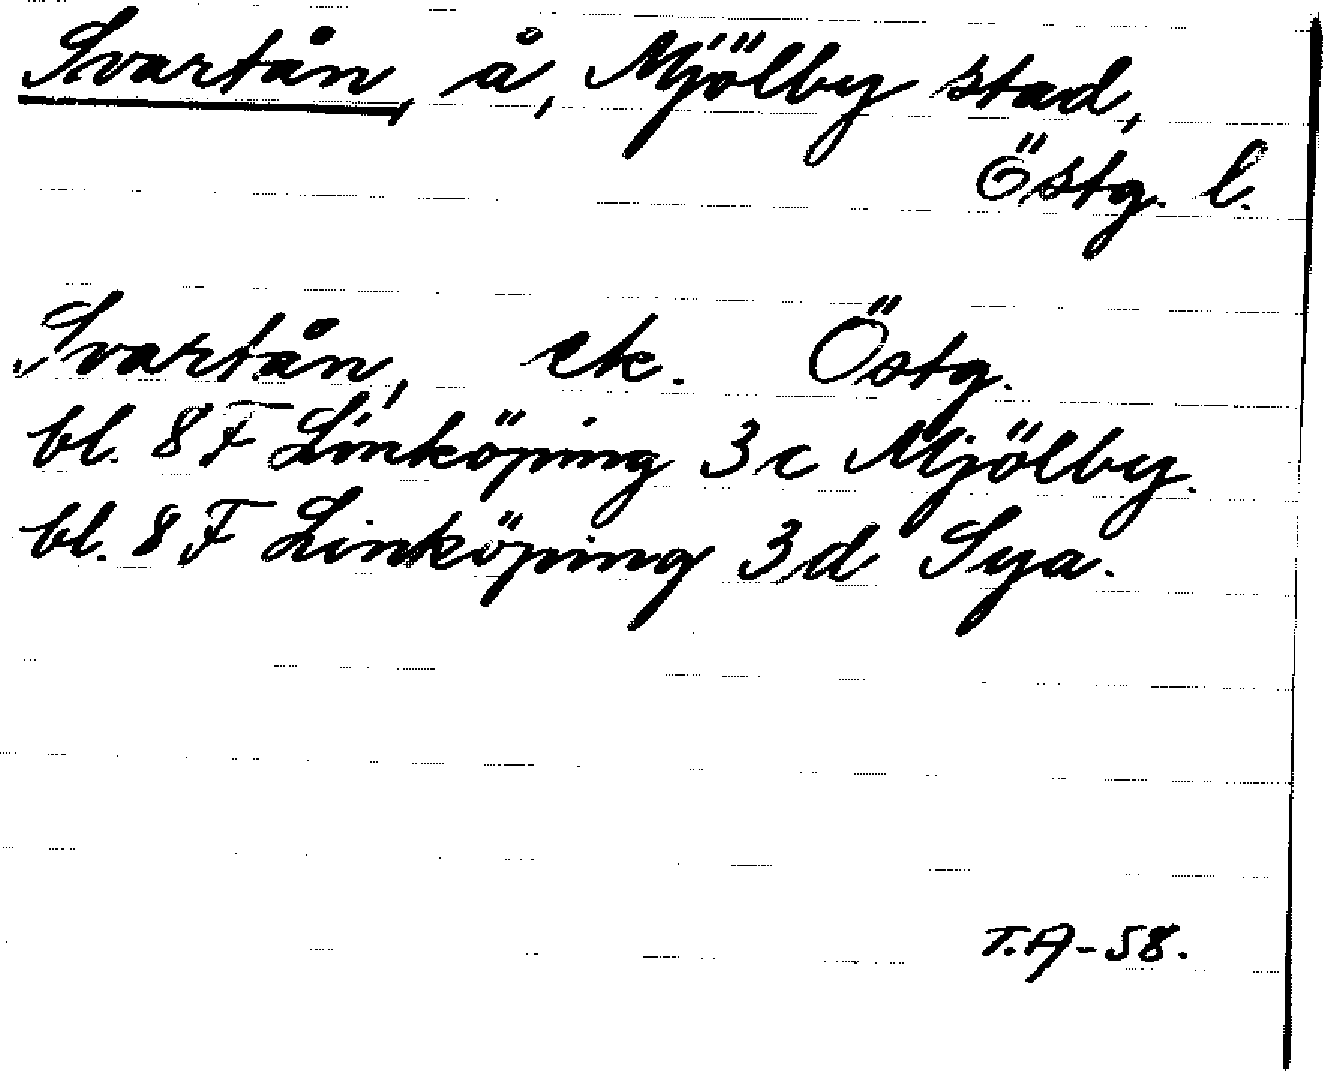 Svartån, å, Mjölby stad,
Östg. l.
Svartån, ek. Östg.
bl. 8 F Linköping 3 c Mjölby.
bl. 8 F Linköping 3d Sya.
T.A-58.